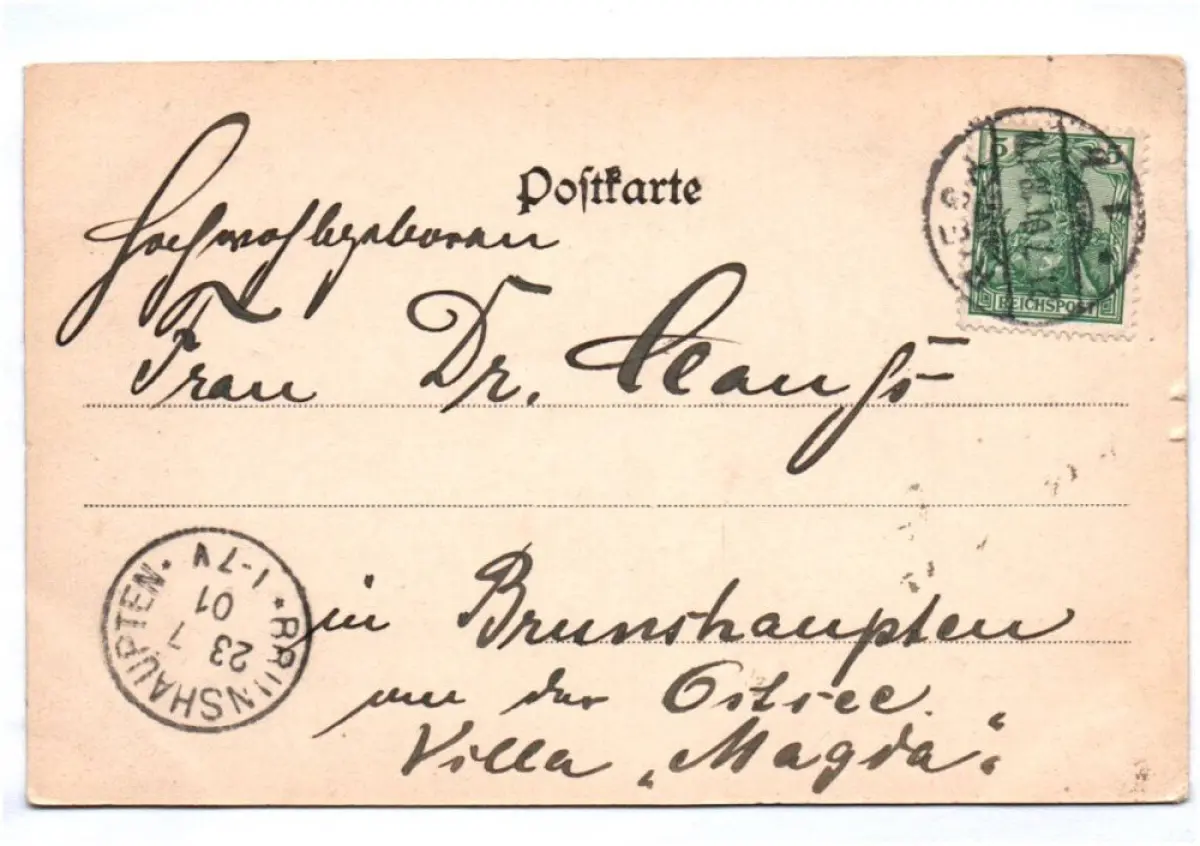 Postkarte
5 5
REICHSPOST
Hochwohlgeboren
Frau Dr.
in Brunshaupten
an der Ostsee.
Villa „Magda“.
BRUNSHAUPTEN
23 7
01
1-7V